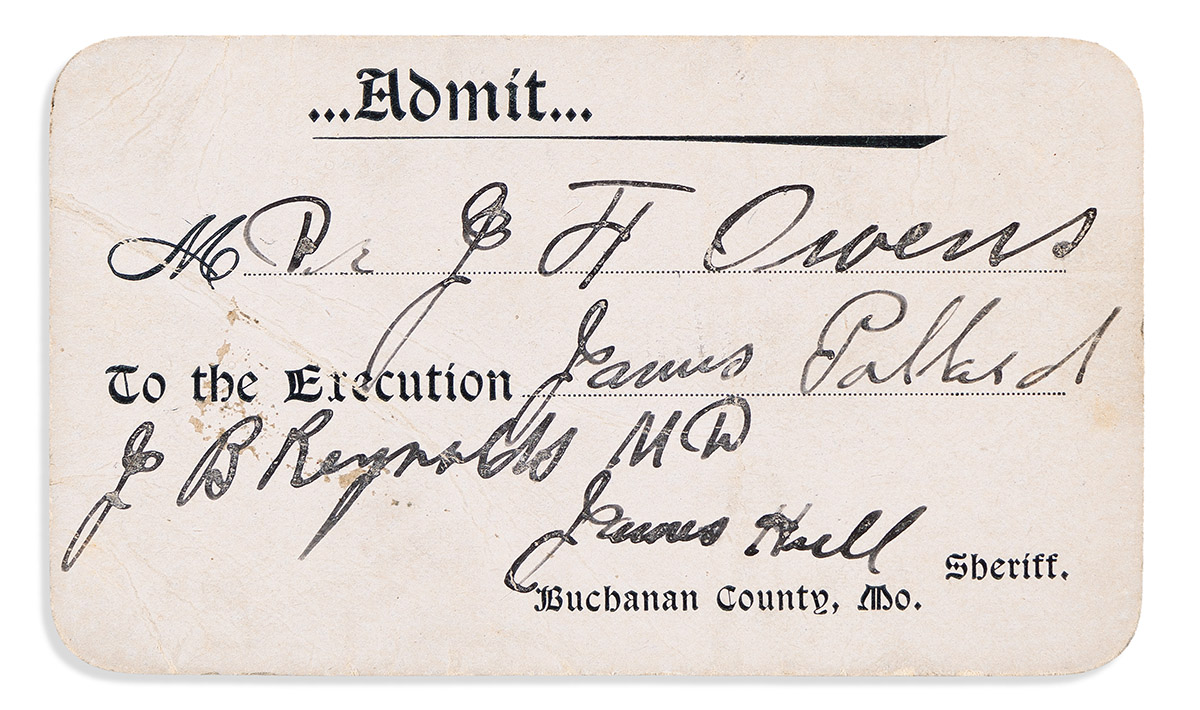 ...Admit...
M Dr J H Owens
To the Execution James Pollard
J B Reynolds MD
James Hull Sheriff.
Buchanan County, Mo.